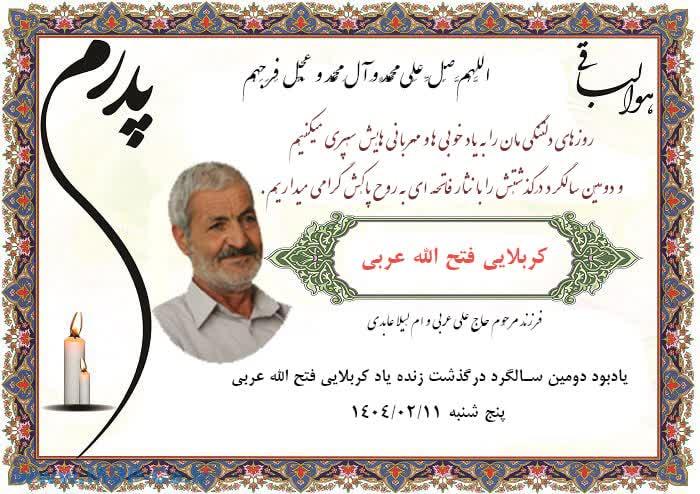 هوالباقی
پدرم
اللهم صل علی محمد و آل محمد و عجل فرجهم
روزهای دلتنگی مان را به یاد خوبی ها و مهربانی هایش سپری میکنیم
و دومین سالگرد درگذشتش را با نثار فاتحه ای به روح پاکش گرامی میداریم.
کربلایی فتح الله عربی
فرزند مرحوم حاج علی عربی و ام لیلا عابدی
یادبود دومین سـالگرد درگذشت زنده یاد کربلایی فتح الله عربی
پنج شنبه ۱۴۰۴/۰۲/۱۱